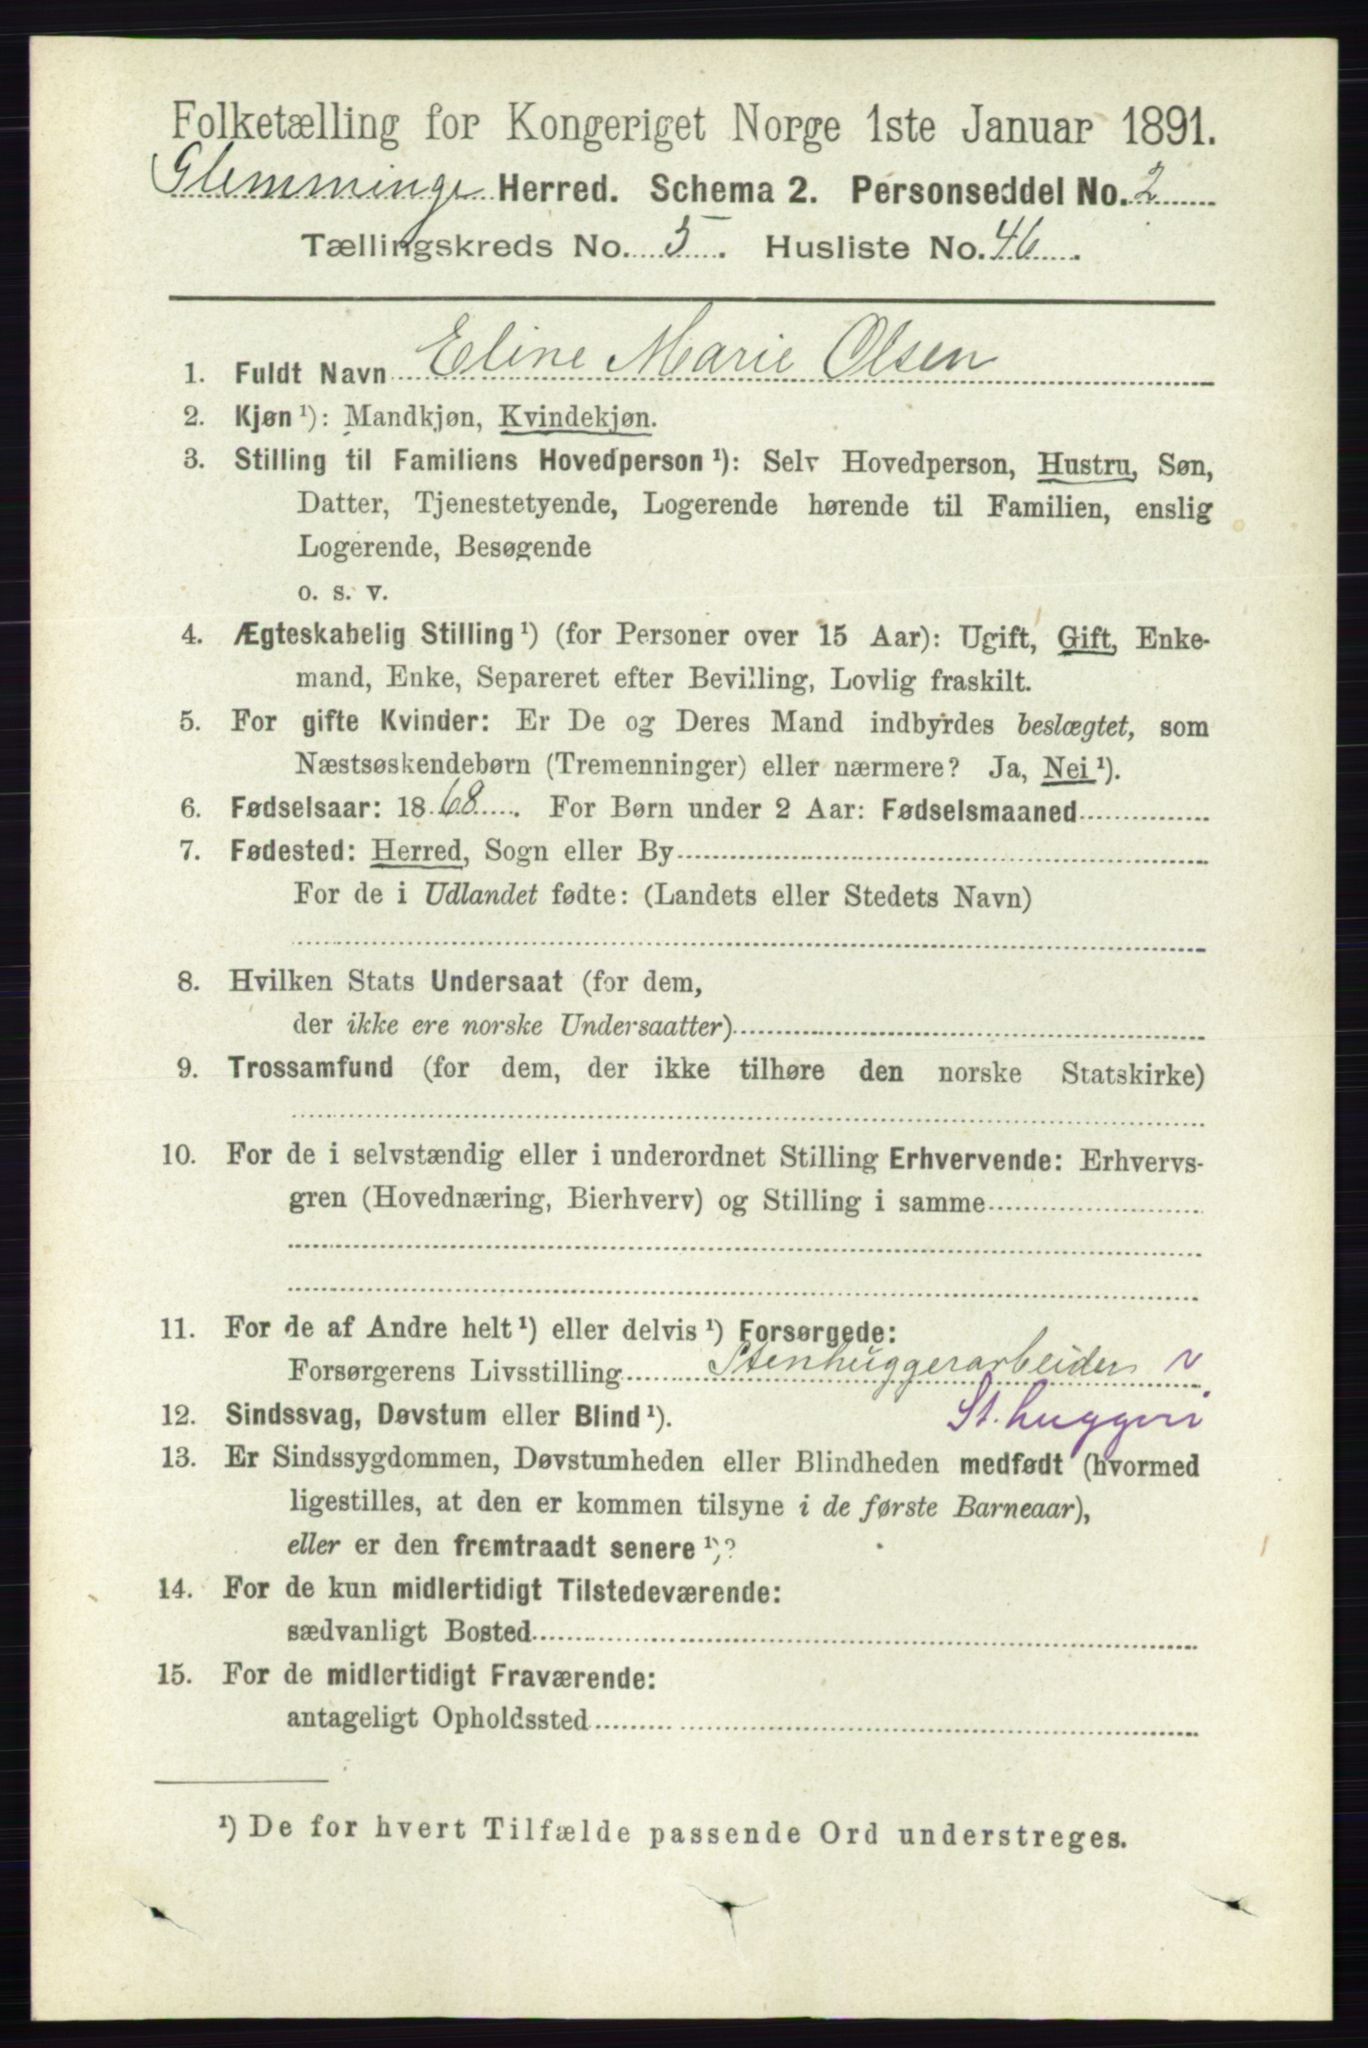 Folketælling for Kongeriget Norge 1ste Januar 1891.
Glemminge Herred. Schema 2. Personseddel No. 2
Tællingskreds No. 5. Husliste No. 46.
1. Fuldt Navn Eline Marie Olsen
2. Kjøn ¹): Mandkjøn, Kvindekjøn.
3. Stilling til Familiens Hovedperson ¹): Selv Hovedperson, Hustru, Søn,
Datter, Tjenestetyende, Logerende hørende til Familien, enslig
Logerende, Besøgende
o. s. v.
4. Ægteskabelig Stilling ¹) (for Personer over 15 Aar): Ugift, Gift, Enke-
mand, Enke, Separeret efter Bevilling, Lovlig fraskilt.
5. For gifte Kvinder: Er De og Deres Mand indbyrdes beslægtet, som
Næstsøskendebørn (Tremenninger) eller nærmere? Ja, Nei ¹).
6. Fødselsaar: 1868. For Børn under 2 Aar: Fødselsmaaned
7. Fødested: Herred, Sogn eller By
For de i Udlandet fødte: (Landets eller Stedets Navn)
8. Hvilken Stats Undersaat (for dem,
der ikke ere norske Undersaatter)
9. Trossamfund (for dem, der ikke tilhøre den norske Statskirke)
10. For de i selvstændig eller i underordnet Stilling Erhvervende: Erhvervs-
gren (Hovednæring, Bierhverv) og Stilling i samme
11. For de af Andre helt ¹) eller delvis ¹) Forsørgede:
Forsørgerens Livsstilling Stenhuggerarbeider v
12. Sindssvag, Døvstum eller Blind ¹). St. huggeri
13. Er Sindssygdommen, Døvstumheden eller Blindheden medfødt (hvormed
ligestilles, at den er kommen tilsyne i de første Barneaar),
eller er den fremtraadt senere ¹)?
14. For de kun midlertidigt Tilstedeværende:
sædvanligt Bosted
15. For de midlertidigt Fraværende:
antageligt Opholdssted
¹) De for hvert Tilfælde passende Ord understreges.